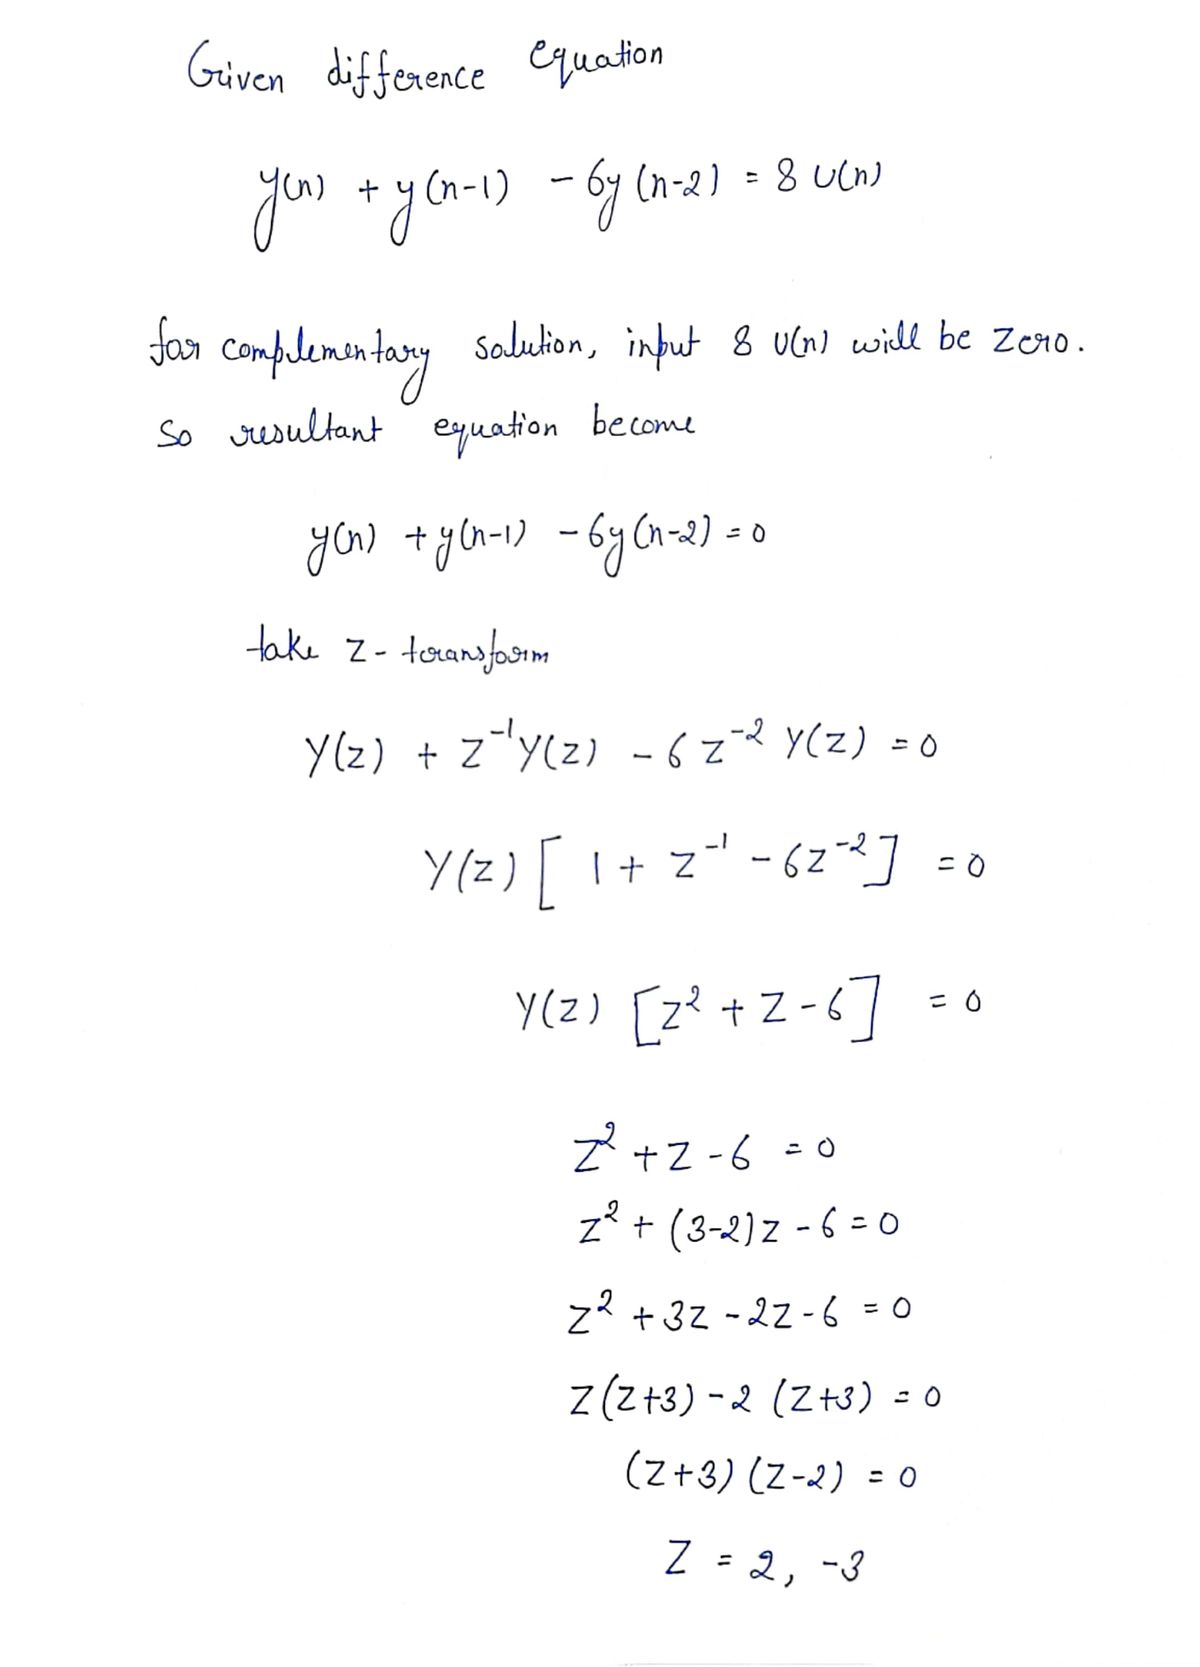 Given difference equation
y(n) + y(n-1) - 6y(n-2) = 8 U(n)
for complementary solution, input 8 U(n) will be zero.
So resultant equation become
y(n) + y(n-1) - 6y(n-2) = 0
take z-transform
Y(z) + z⁻¹Y(z) - 6z⁻² Y(z) = 0
Y(z) [ 1 + z⁻¹ - 6z⁻² ] = 0
Y(z) [z² + z - 6] = 0
z² + z - 6 = 0
z² + (3-2)z - 6 = 0
z² + 3z - 2z - 6 = 0
z(z+3) - 2 (z+3) = 0
(z+3) (z-2) = 0
z = 2, -3